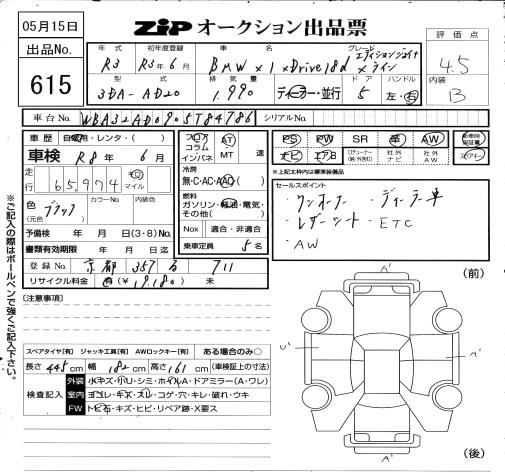 05月15日
ZIP オークション出品票
出品No.
615
年式 初年度登録 車名 グレード
R3 R3年6月 BMW X1 xDrive18d エディションジョイ+ xライン
型式 排気量 ドア ハンドル
3DA-AD20 1,990 ディーラー・並行 5 左・右
評価点
4.5
内装
B
車台No. WBA32AD0905T84786 シリアルNo.
車歴 自家用・レンタ・( )
車検 R8年 6月
走行 65,974 km マイル
色 (元色) ブラック カラーNo. 内装色
予備検 年 月 日(3・8)No.
書類有効期限 年 月 日迄
登録No. 京都 357 る 711
リサイクル料金 有(¥19,180) 未
フロア コラム インパネ AT MT 速
冷房 無・C・AC・AAC( )
燃料 ガソリン・軽油・電気・その他( )
Nox 適合・非適合
乗車定員 5名
PS PW SR 革 AW 新車時保証書
ナビ エアB 社外ナビ 社外AW スペアキー
※上記太枠内は標準装備品
セールスポイント
・ワンオーナー ・ディーラー車
・レザーシート ・ETC
・AW
(注意事項)
スペアタイヤ[有] ジャッキ工具[有] AWロックキー[有] ある場合のみ○
長さ 445cm 幅 182cm 高さ 161cm (車検証上の寸法)
検査記入 外装 水キズ・小リ・シミ・ホイルA・ドアミラー(A・ワレ)
室内 ヨゴレ・キズ・スレ・コゲ・穴・キレ・破れ・ウキ
FW トビ石・キズ・ヒビ・リペア跡・X要ス
(前)
A'
U'
A'
A'
(後)
※ご記入の際はボールペンで強くご記入下さい。